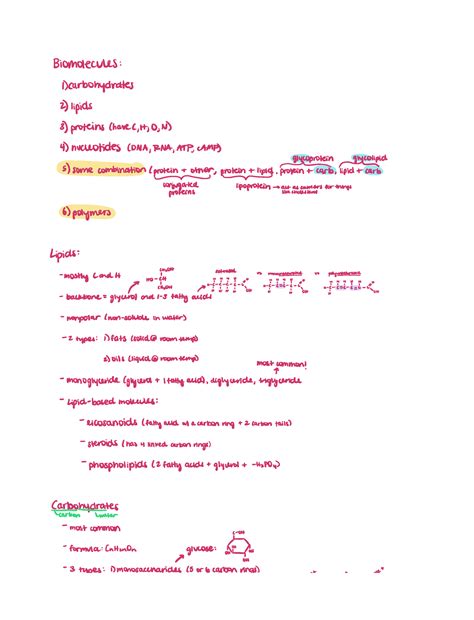 Biomolecules:
1) carbohydrates
2) lipids
3) proteins (have C, H, O, N)
4) nucleotides (DNA, RNA, ATP, cAMP)
glycoprotein glycolipid
5) some combination (protein + other, protein + lipid, protein + carb, lipid + carb
conjugated proteins
lipoprotein → act as carriers for things like cholesterol
6) polymers
Lipids:
- mostly C and H
- backbone = glycerol and 1-3 fatty acids
saturated vs monounsaturated vs polyunsaturated
- nonpolar (non-soluble in water)
- 2 types: 1) fats (solid @ room temp)
2) oils (liquid @ room temp)
most common!
- monoglyceride (glycerol + 1 fatty acid), diglyceride, triglyceride
- Lipid-based molecules:
- eicosanoids (fatty acid w a carbon ring + 2 carbon tails)
- steroids (has 4 linked carbon rings)
- phospholipids (2 fatty acids + glycerol + -H₂PO₄)
Carbohydrates
carbon water
- most common
- formula: CnH2nOn glucose:
- 3 types: 1) monosaccharides (5 or 6 carbon rings)